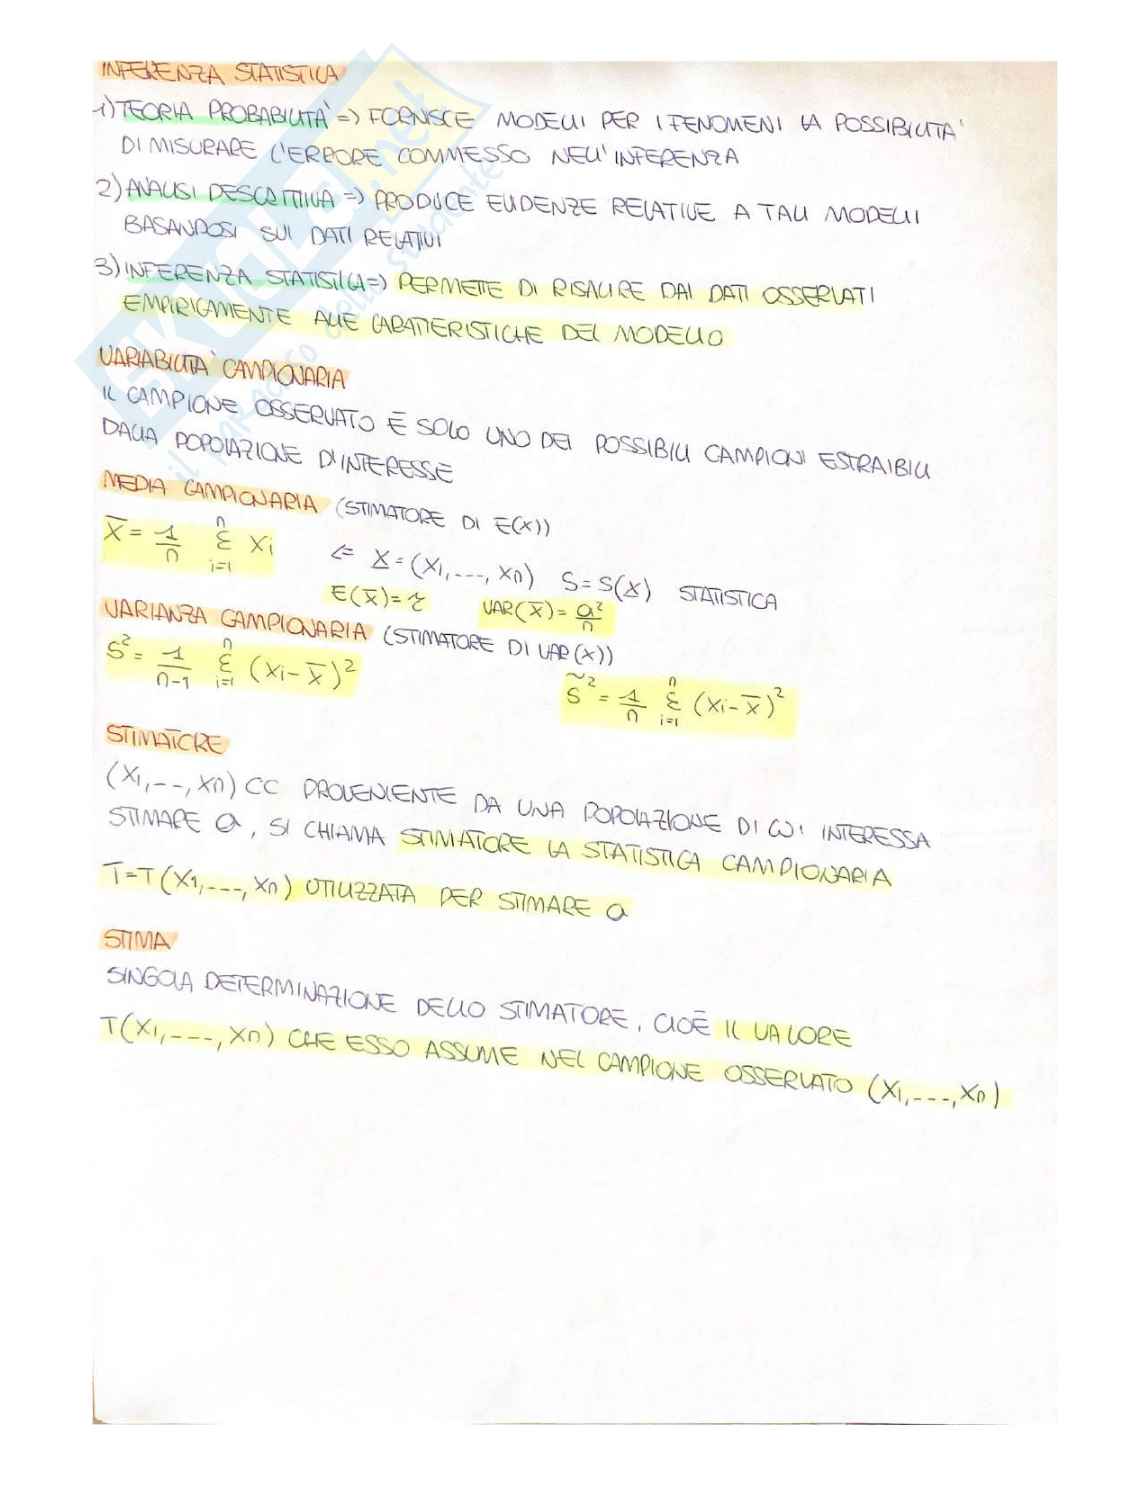 INFERENZA STATISTICA
1) TEORIA PROBABILITA' => FORNISCE MODELLI PER I FENOMENI LA POSSIBILITA'
DI MISURARE L'ERRORE COMMESSO NELL'INFERENZA
2) ANALISI DESCRITTIVA => PRODUCE EVIDENZE RELATIVE A TALI MODELLI
BASANDOSI SUI DATI RELATIVI
3) INFERENZA STATISTICA => PERMETTE DI RISALIRE DAI DATI OSSERVATI
EMPIRICAMENTE ALLE CARATTERISTICHE DEL MODELLO
VARIABILITA' CAMPIONARIA
IL CAMPIONE OSSERVATO È SOLO UNO DEI POSSIBILI CAMPIONI ESTRAIBILI
DALLA POPOLAZIONE D'INTERESSE
MEDIA CAMPIONARIA (STIMATORE DI E(X))
X̄ = 1/n Σ_{i=1}^{n} Xi <= X = (X1,---, Xn) S = S(X) STATISTICA
E(X̄) = τ VAR(X̄) = a²/n
VARIANZA CAMPIONARIA (STIMATORE DI VAR(X))
S² = 1/(n-1) Σ_{i=1}^{n} (Xi - X̄)² S̃² = 1/n Σ_{i=1}^{n} (Xi - X̄)²
STIMATORE
(X1,--, Xn) CC PROVENIENTE DA UNA POPOLAZIONE DI CUI INTERESSA
STIMARE a, SI CHIAMA STIMATORE LA STATISTICA CAMPIONARIA
T = T(X1,---, Xn) UTILIZZATA PER STIMARE a
STIMA
SINGOLA DETERMINAZIONE DELLO STIMATORE, CIOÈ IL VALORE
T(X1,---, Xn) CHE ESSO ASSUME NEL CAMPIONE OSSERVATO (X1,---, Xn)
SKUOLA.net
il paradiso dello studente